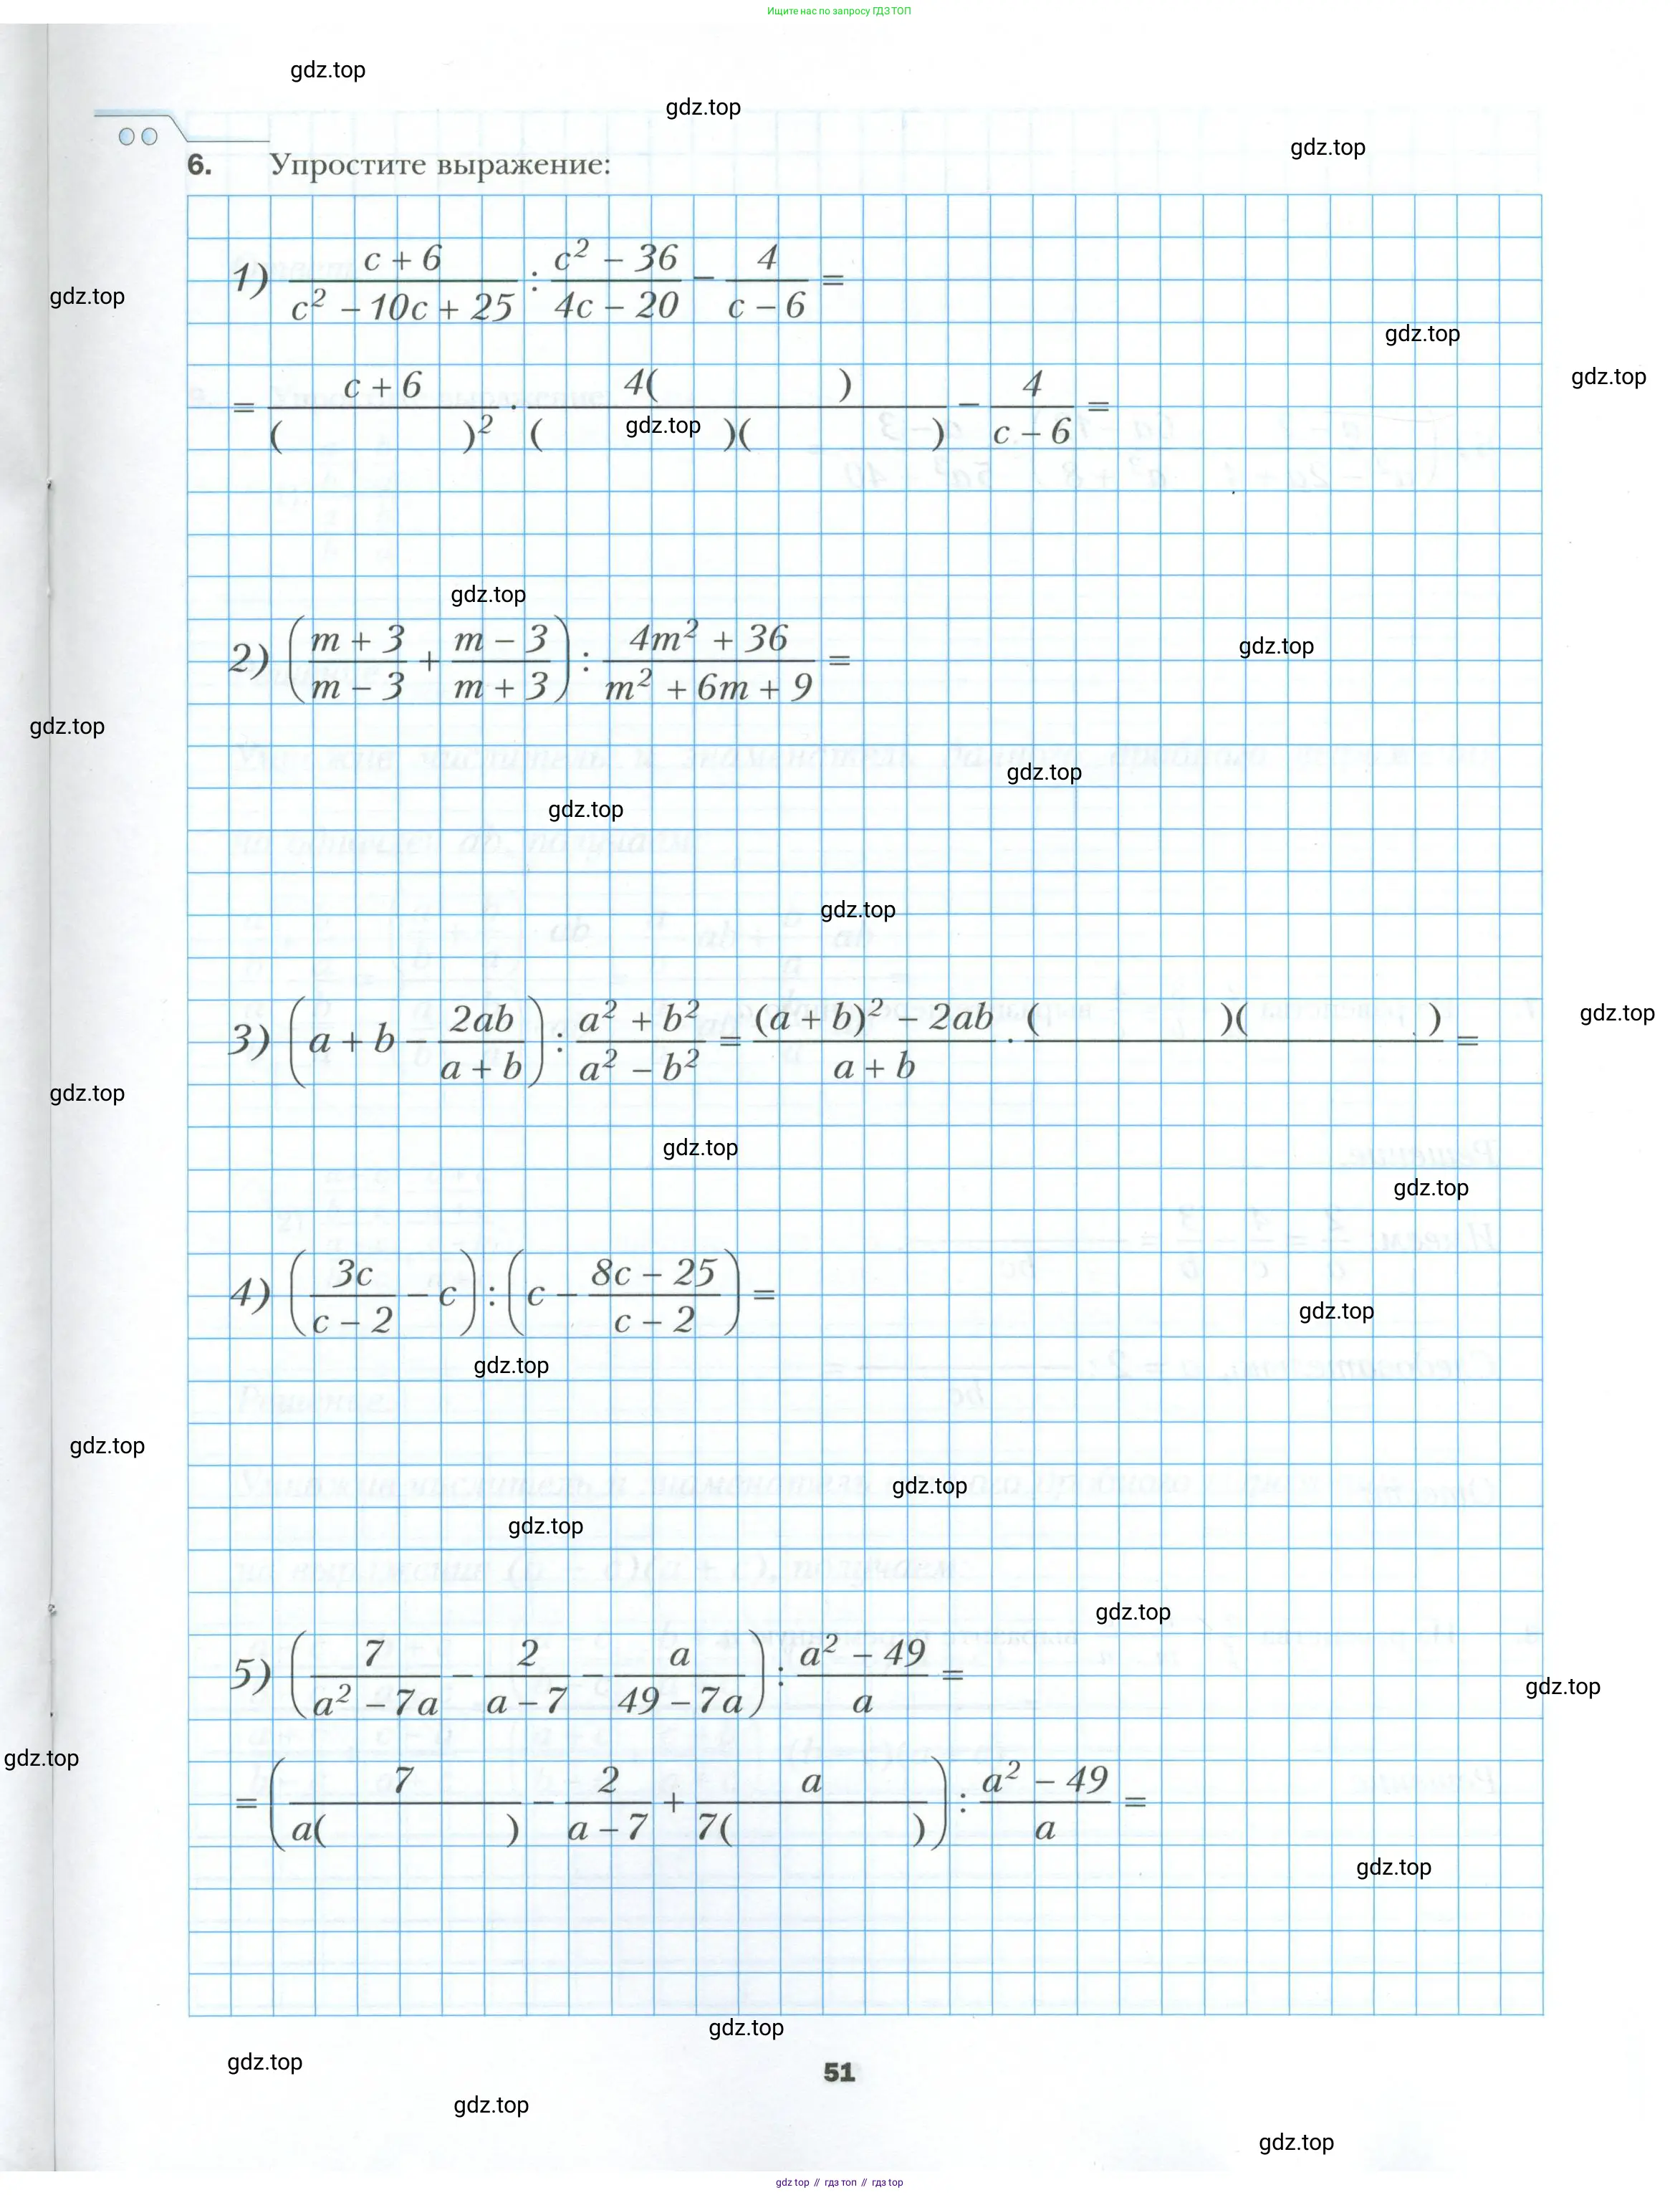 Ищите нас по запросу ГДЗ ТОП
gdz.top
gdz.top
gdz.top
6. Упростите выражение:
gdz.top
1) (c + 6)/(c² − 10c + 25) : (c² − 36)/(4c − 20) − 4/(c − 6) =
gdz.top
gdz.top
= (c + 6)/( )² · 4( )/( )( ) − 4/(c − 6) =
gdz.top
gdz.top
gdz.top
2) ((m + 3)/(m − 3) + (m − 3)/(m + 3)) : (4m² + 36)/(m² + 6m + 9) =
gdz.top
gdz.top
gdz.top
gdz.top
gdz.top
3) (a + b − 2ab/(a + b)) : (a² + b²)/(a² − b²) = ((a + b)² − 2ab)/(a + b) · ( )( )/ =
gdz.top
gdz.top
gdz.top
4) (3c/(c − 2) − c) : (c − (8c − 25)/(c − 2)) =
gdz.top
gdz.top
gdz.top
gdz.top
gdz.top
gdz.top
5) (7/(a² − 7a) − 2/(a − 7) − a/(49 − 7a)) : (a² − 49)/a =
gdz.top
gdz.top
= (7/a( ) − 2/(a − 7) + a/7( )) : (a² − 49)/a =
gdz.top
gdz.top
gdz.top
51
gdz.top
gdz.top
gdz top // гдз топ // гдз top